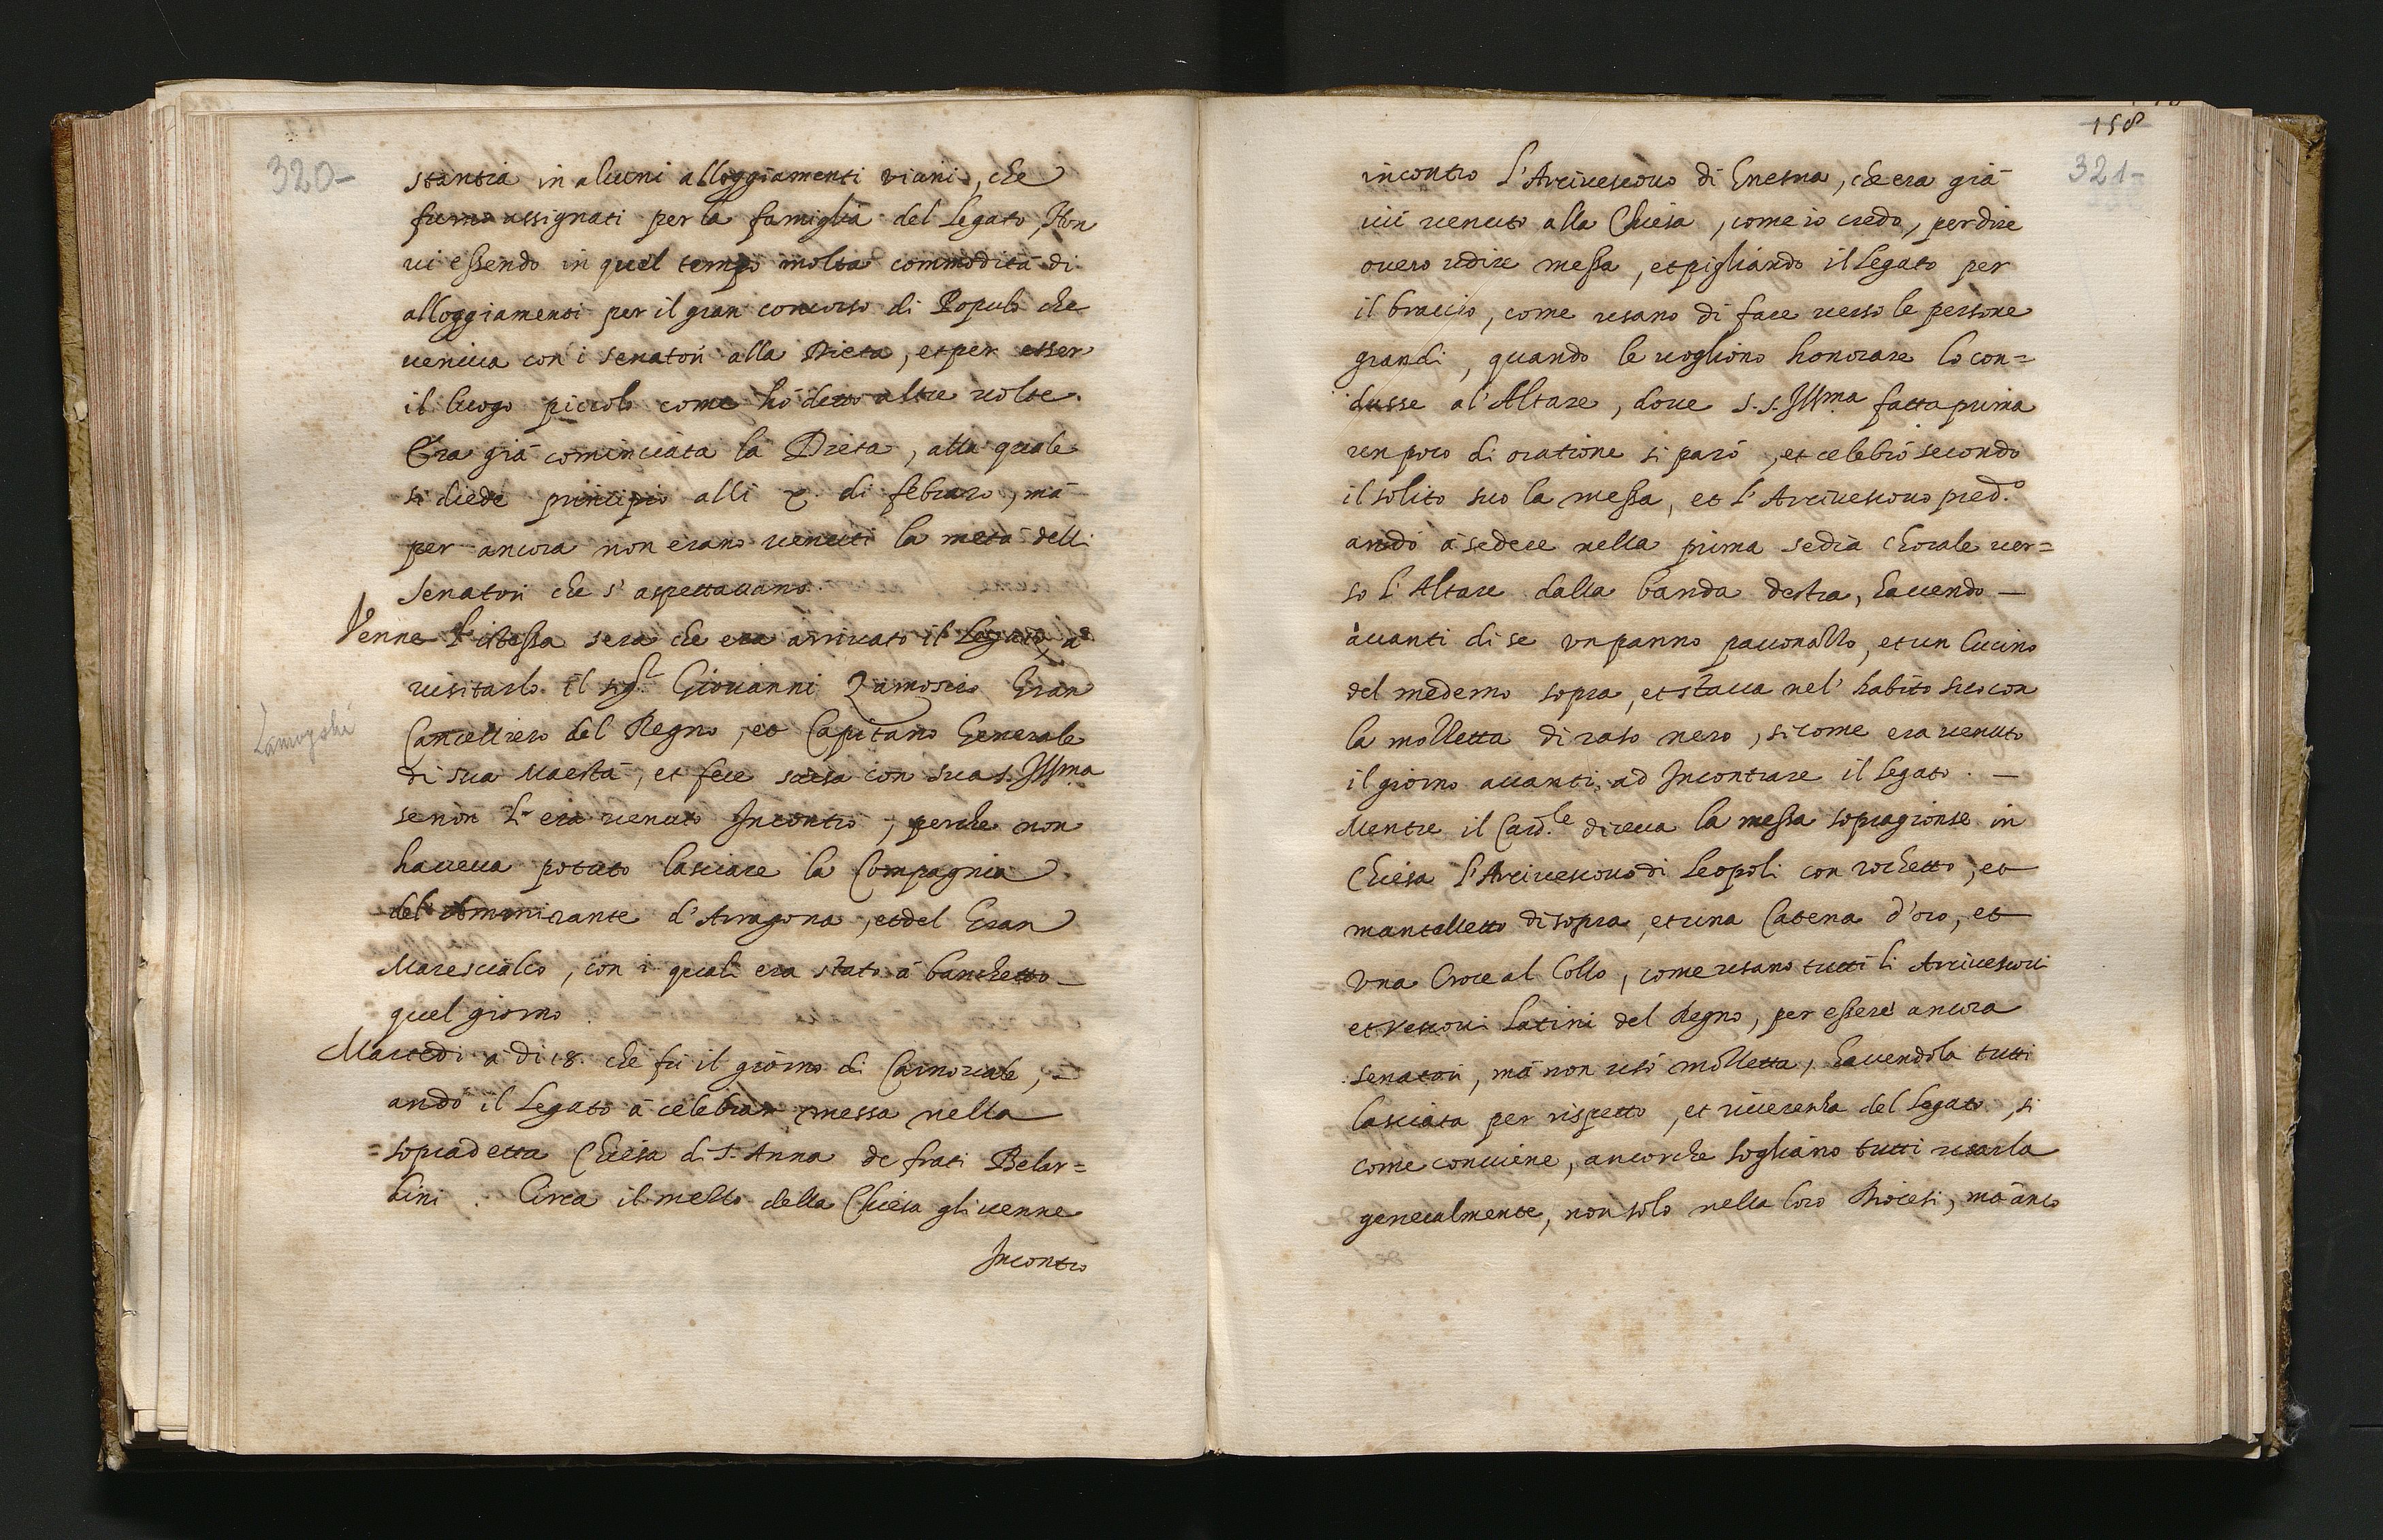 320-
stantia in alcuni alloggiamenti vicini, che
furno assignati per la famiglia del Legato, Non
vi essendo in quel tempo molta commodità di
alloggiamenti per il gran concorso di Populo che
veniva con i senatori alla Dieta, et per esser
il luogo piccolo come hò detto altre volte.
Era già cominciata la Dieta, alla quale
si diede principio alli X. di febraro, mà
per ancora non erano venuti la metà delli
Senatori che s'aspettavano.
Venne l'istessa sera che era arrivato il Legato, à
visitarlo il sig.r Giovanni Zamoscio Gran
Cancelliero del Regno, et Capitano Generale
Zamoyski
di sua Maestà, et fece scusa con sua s. Illma
se non l'era venuto Incontro, perche non
haveva potuto lasciare la Compagnia
del Ammirante d'Arragona, et del Gran
Marescialco, con i quali era stato à banchetto
quel giorno.
Martedi à di 18. che fù il giorno di Carnovale,
andò il Legato à celebrar messa nella
=sopradetta Chiesa di S. Anna de frati Belar=
dini. Circa il mezzo della Chiesa gli venne
Incontro
158
321-
incontro l'Arcivescovo di Gnesna, che era già
ivi venuto alla Chiesa, come io credo, per dire
overo udire messa, et pigliando il Legato per
il braccio, come usano di fare verso le persone
grandi, quando le vogliono honorare lo con=
dusse al'Altare, dove S. S. Illma fatta prima
un poco di oratione si parò, et celebrò secondo
il solito suo la messa, et l'Arcivescovo pred.o
andò à sedere nella prima sedia Chorale ver=
so l'Altare dalla banda destra, havendo —
àvanti di se un panno pavonazzo, et un Cucino
del medemo sopra, et stava nel' habito suo con
la mozzetta di raso nero, sicome era venuto
il giorno avanti, ad Incontrare il Legato. —
Mentre il Card.le diceva la messa sopragionse in
Chiesa l'Arcivescovo di Leopoli con rochetto, et
mantelletto di sopra, et una Catena d'oro, et
Una Croce al Collo, come usano tutti li Arcivescovi
et Vescovi Latini del Regno, per essere ancora
senatori, mà non usò mozzetta, havendola tutti
lasciata per rispetto, et riverenza del Legato, si
come conviene, ancorche sogliano tutti usarla
generalmente, non solo nella loro Diocesi, mà anco